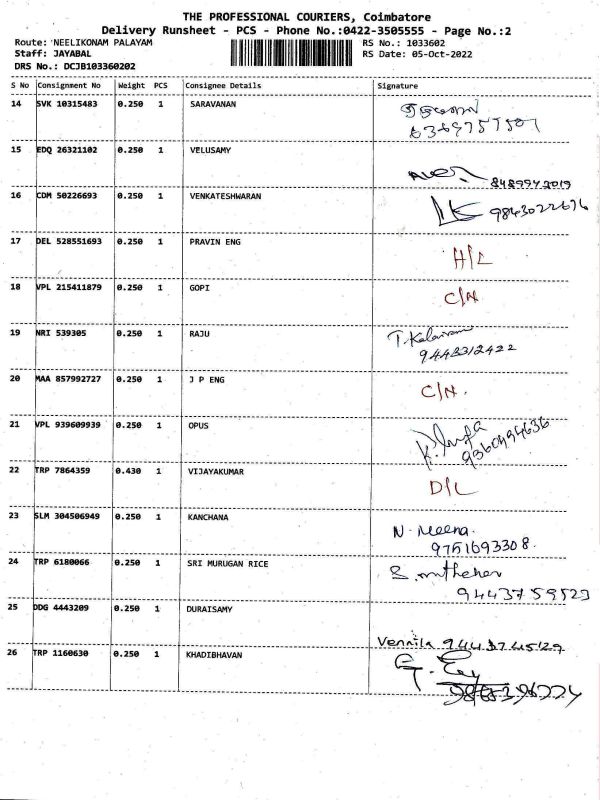 THE PROFESSIONAL COURIERS, Coimbatore
Delivery Runsheet - PCS - Phone No.:0422-3505555 - Page No.:2
Route: NEELIKONAM PALAYAM RS No.: 1033602
Staff: JAYABAL RS Date: 05-Oct-2022
DRS No.: DCJB103360202
S No Consignment No Weight PCS Consignee Details Signature
14 SVK 10315483 0.250 1 SARAVANAN
15 EDQ 26321102 0.250 1 VELUSAMY
8489942019
16 CDM 50226693 0.250 1 VENKATESHWARAN
9843022676
17 DEL 528551693 0.250 1 PRAVIN ENG
H/L
18 VPL 215411879 0.250 1 GOPI
C/N
19 NRI 539305 0.250 1 RAJU
9443312422
20 MAA 857992727 0.250 1 J P ENG
C/N.
21 VPL 939609939 0.250 1 OPUS
9360494636
22 TRP 7864359 0.430 1 VIJAYAKUMAR
D/L
23 SLM 304506949 0.250 1 KANCHANA
N. Meena.
9751693308.
24 TRP 6180066 0.250 1 SRI MURUGAN RICE
9443759523
25 DDG 4443209 0.250 1 DURAISAMY
Vennila 9443745129
26 TRP 1160630 0.250 1 KHADIBHAVAN